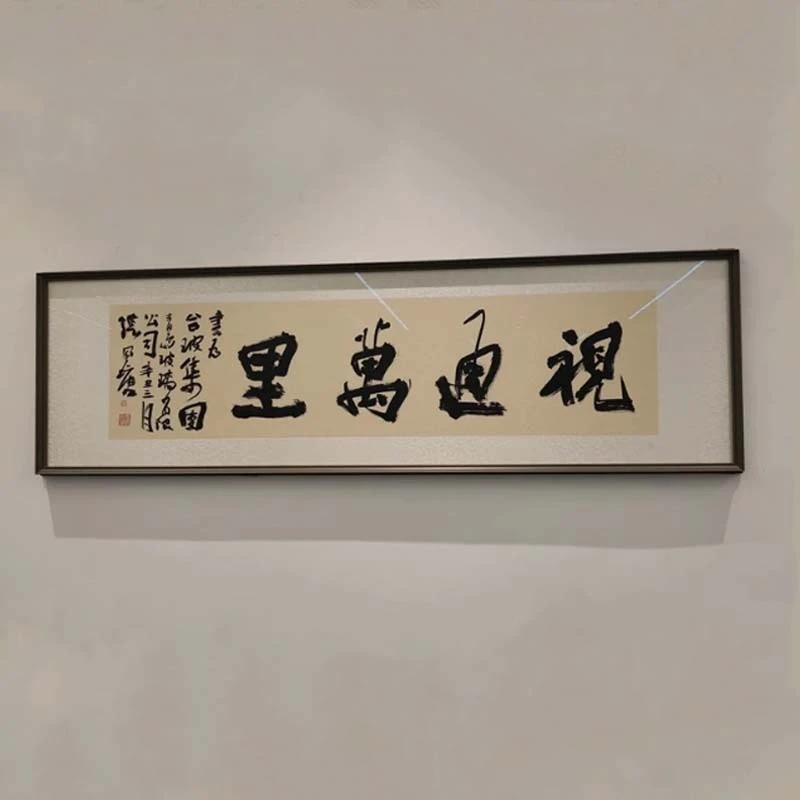 視通萬里
書爲
台玻集團
青島玻璃有限
公司辛丑三月